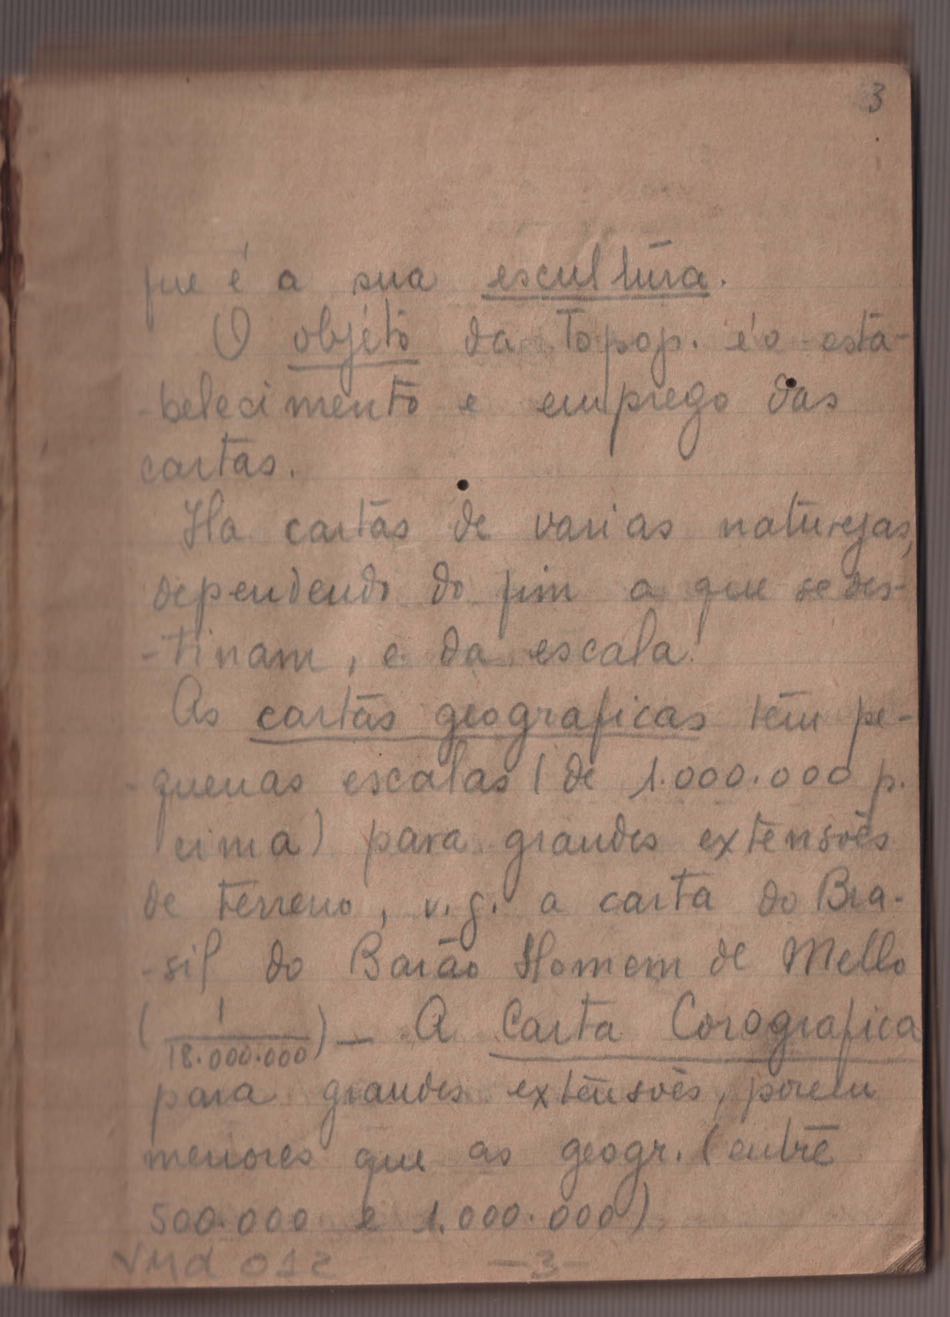 3
que é a sua escultura.
O objéto da Topog. é o esta-
-belecimento e emprego das
cartas.
Ha cartas de varias naturezas,
dependendo do fim a que se des-
-tinam, e da escala.
As cartas geograficas têm pe-
-quenas escalas (de 1.000.000 p.
cima) para grandes extensões
de terreno, v.g. a carta do Bra-
-sil do Barão Homem de Mello
(1/18.000.000) — A Carta Corografica
para grandes extensões, porem
menores que as geogr. (entre
500.000 e 1.000.000)
012 -3-